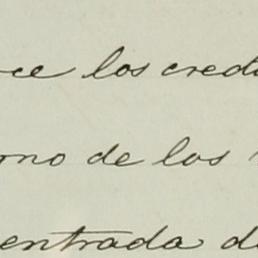 ce los credi
rno de los
entrada de